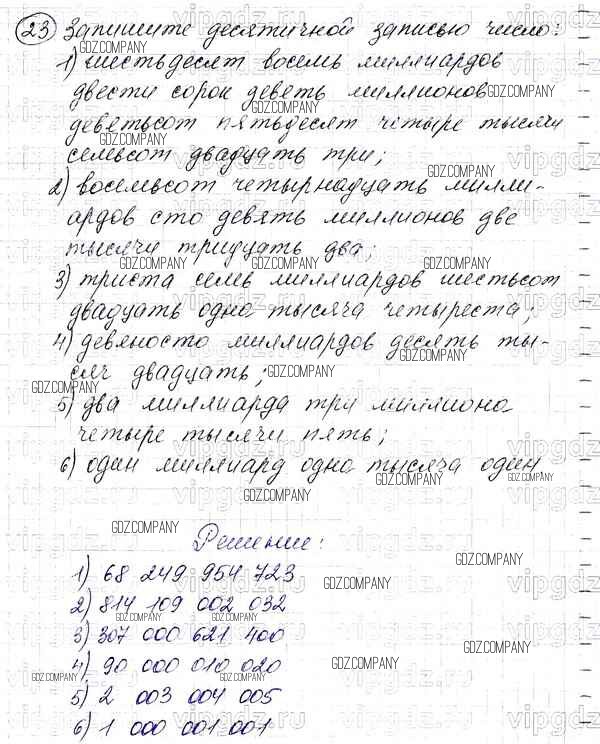 23 Запишите десятичной записью число:
1) шестьдесят восемь миллиардов
двести сорок девять миллионов
девятьсот пятьдесят четыре тысячи
семьсот двадцать три;
2) восемьсот четырнадцать милли-
ардов сто девять миллионов две
тысячи тридцать два;
3) триста семь миллиардов шестьсот
двадцать одна тысяча четыреста;
4) девяносто миллиардов десять ты-
сяч двадцать;
5) два миллиарда три миллиона
четыре тысячи пять;
6) один миллиард одна тысяча один
Решение:
1) 68 249 954 723
2) 814 109 002 032
3) 307 000 621 400
4) 90 000 010 020
5) 2 003 004 005
6) 1 000 001 001
GDZ.COMPANY
vipgdz.ru